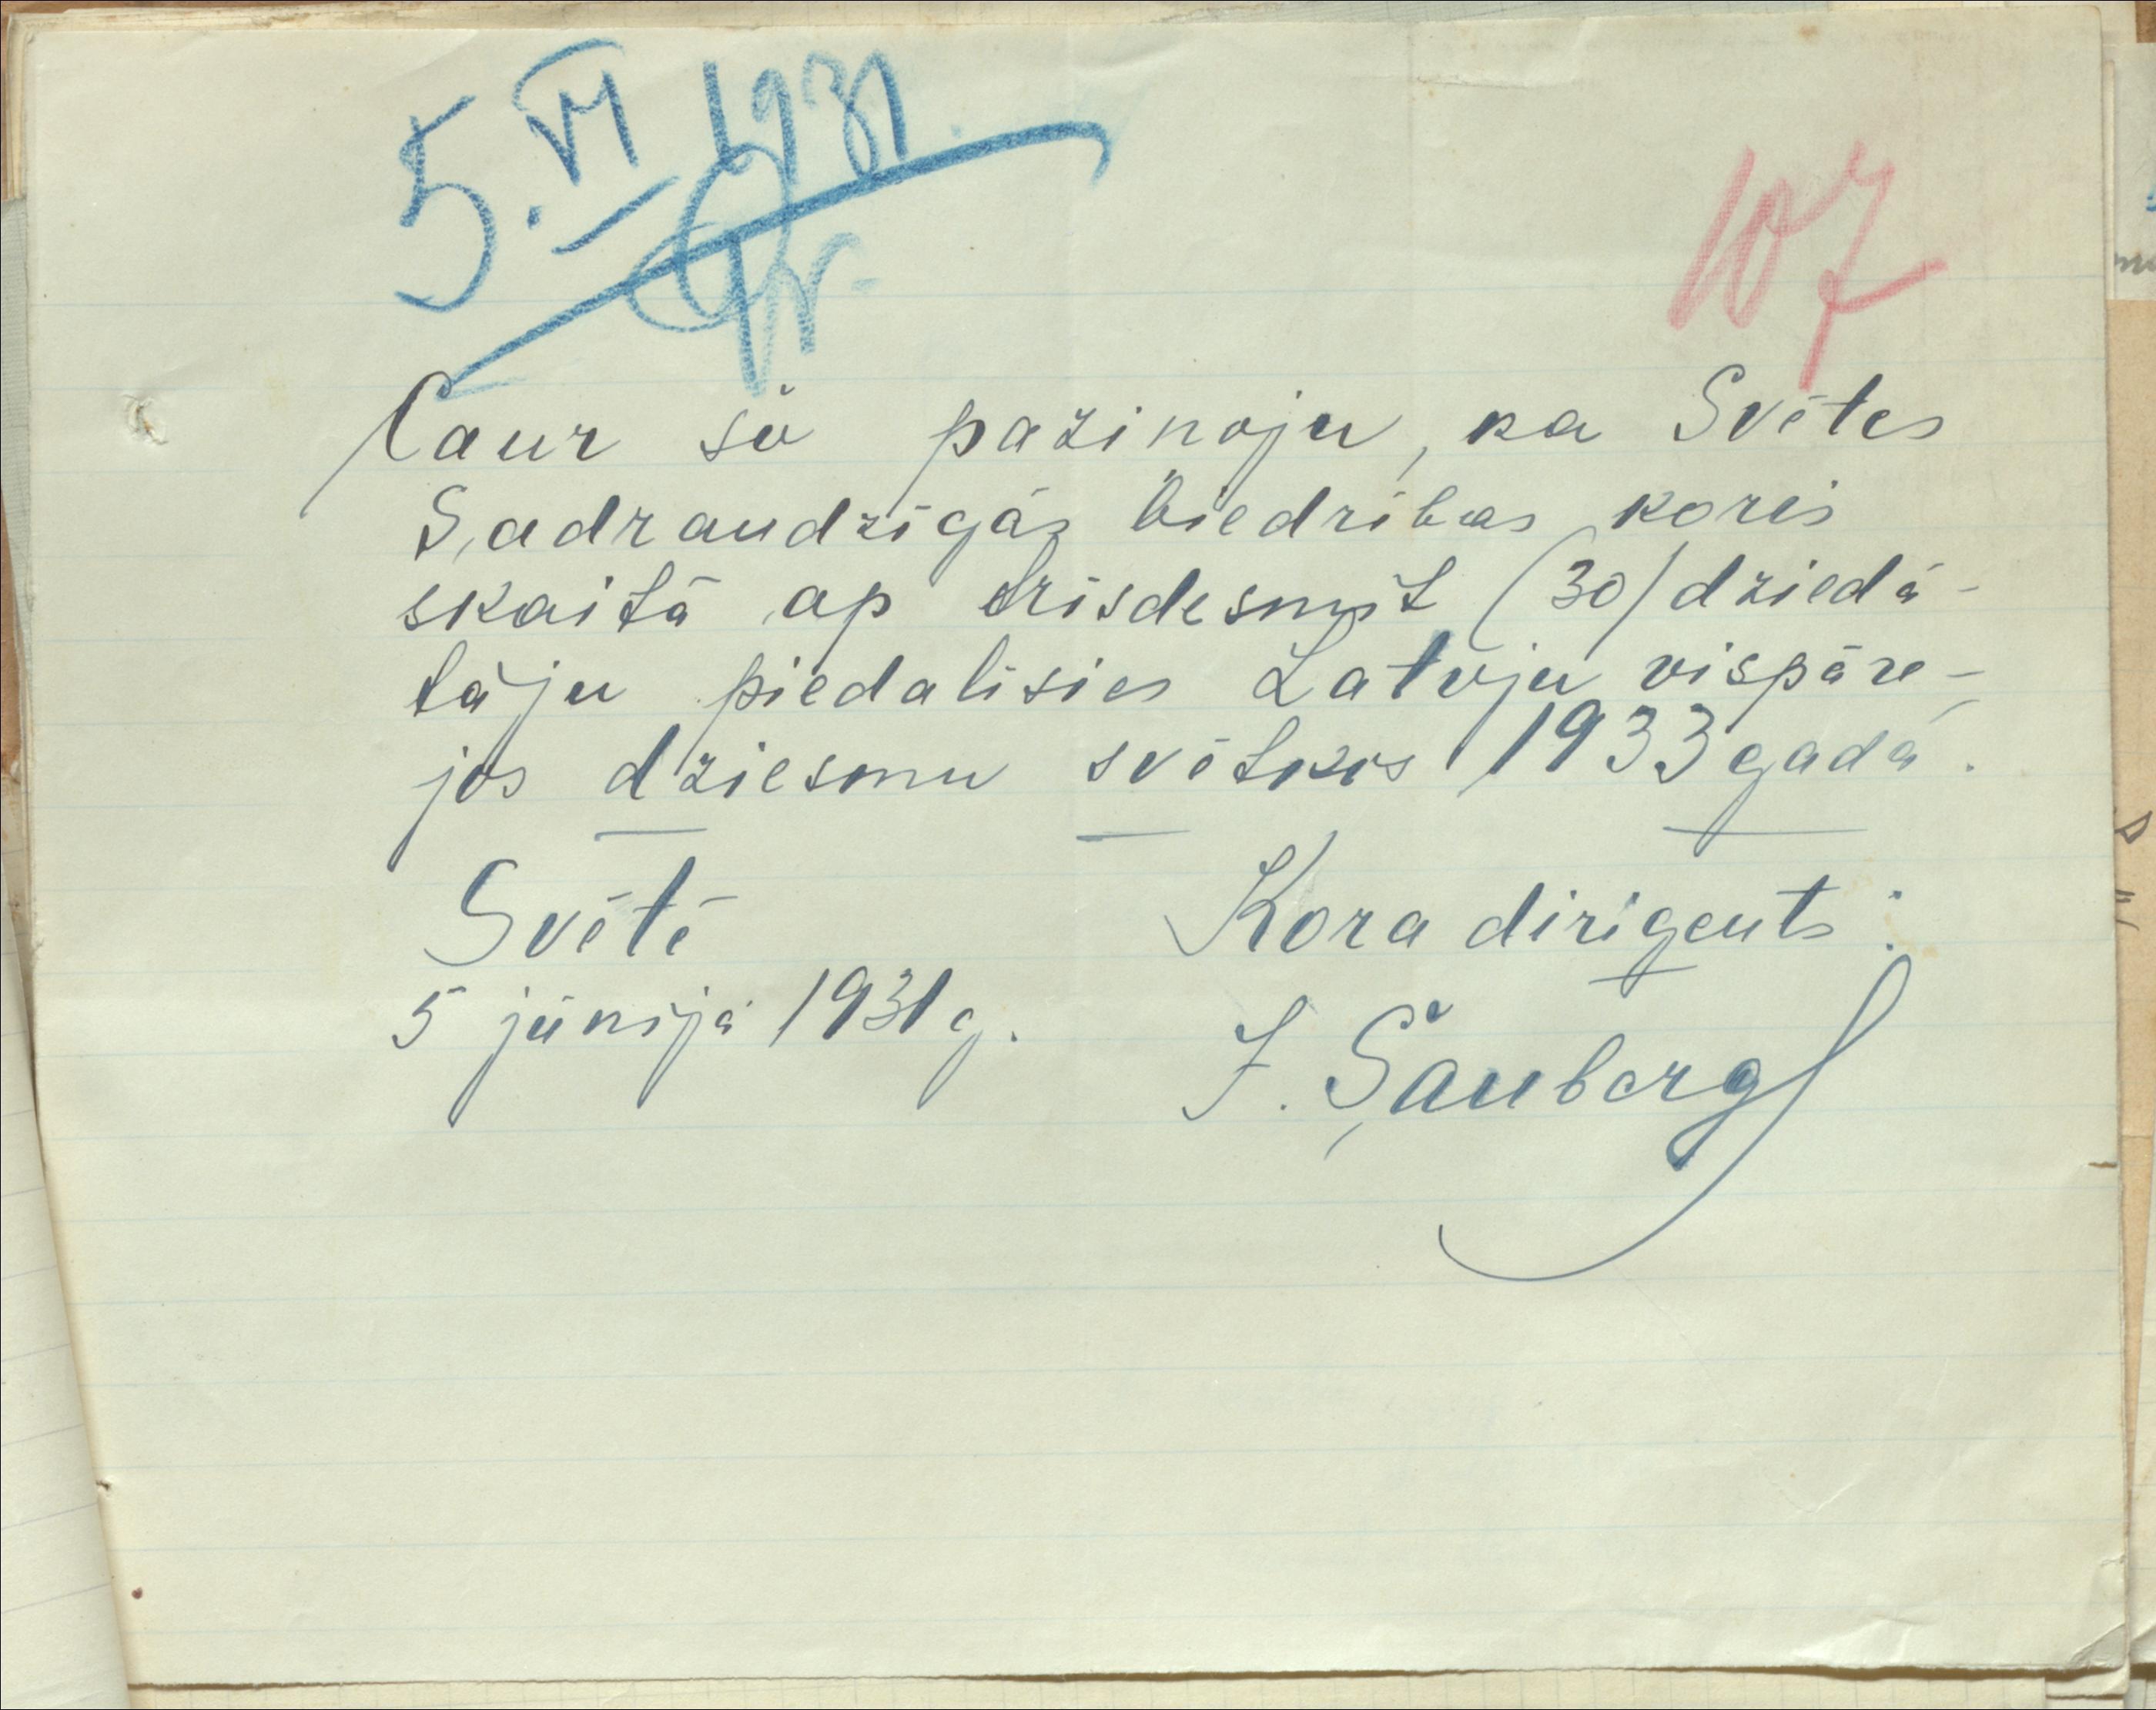 5. VI 1931
107
Caur šo paziņoju, ka Svētes
Sadraudzīgās biedrības koris
skaitā ap trīsdesmit (30) dziedā-
tāju piedalīsies Latvju vispāre-
jos dziesmu svētkos 1933 gadā.
Svētē
Kora dirigents:
5 jūnijā 1931 g.
J. Šauberg